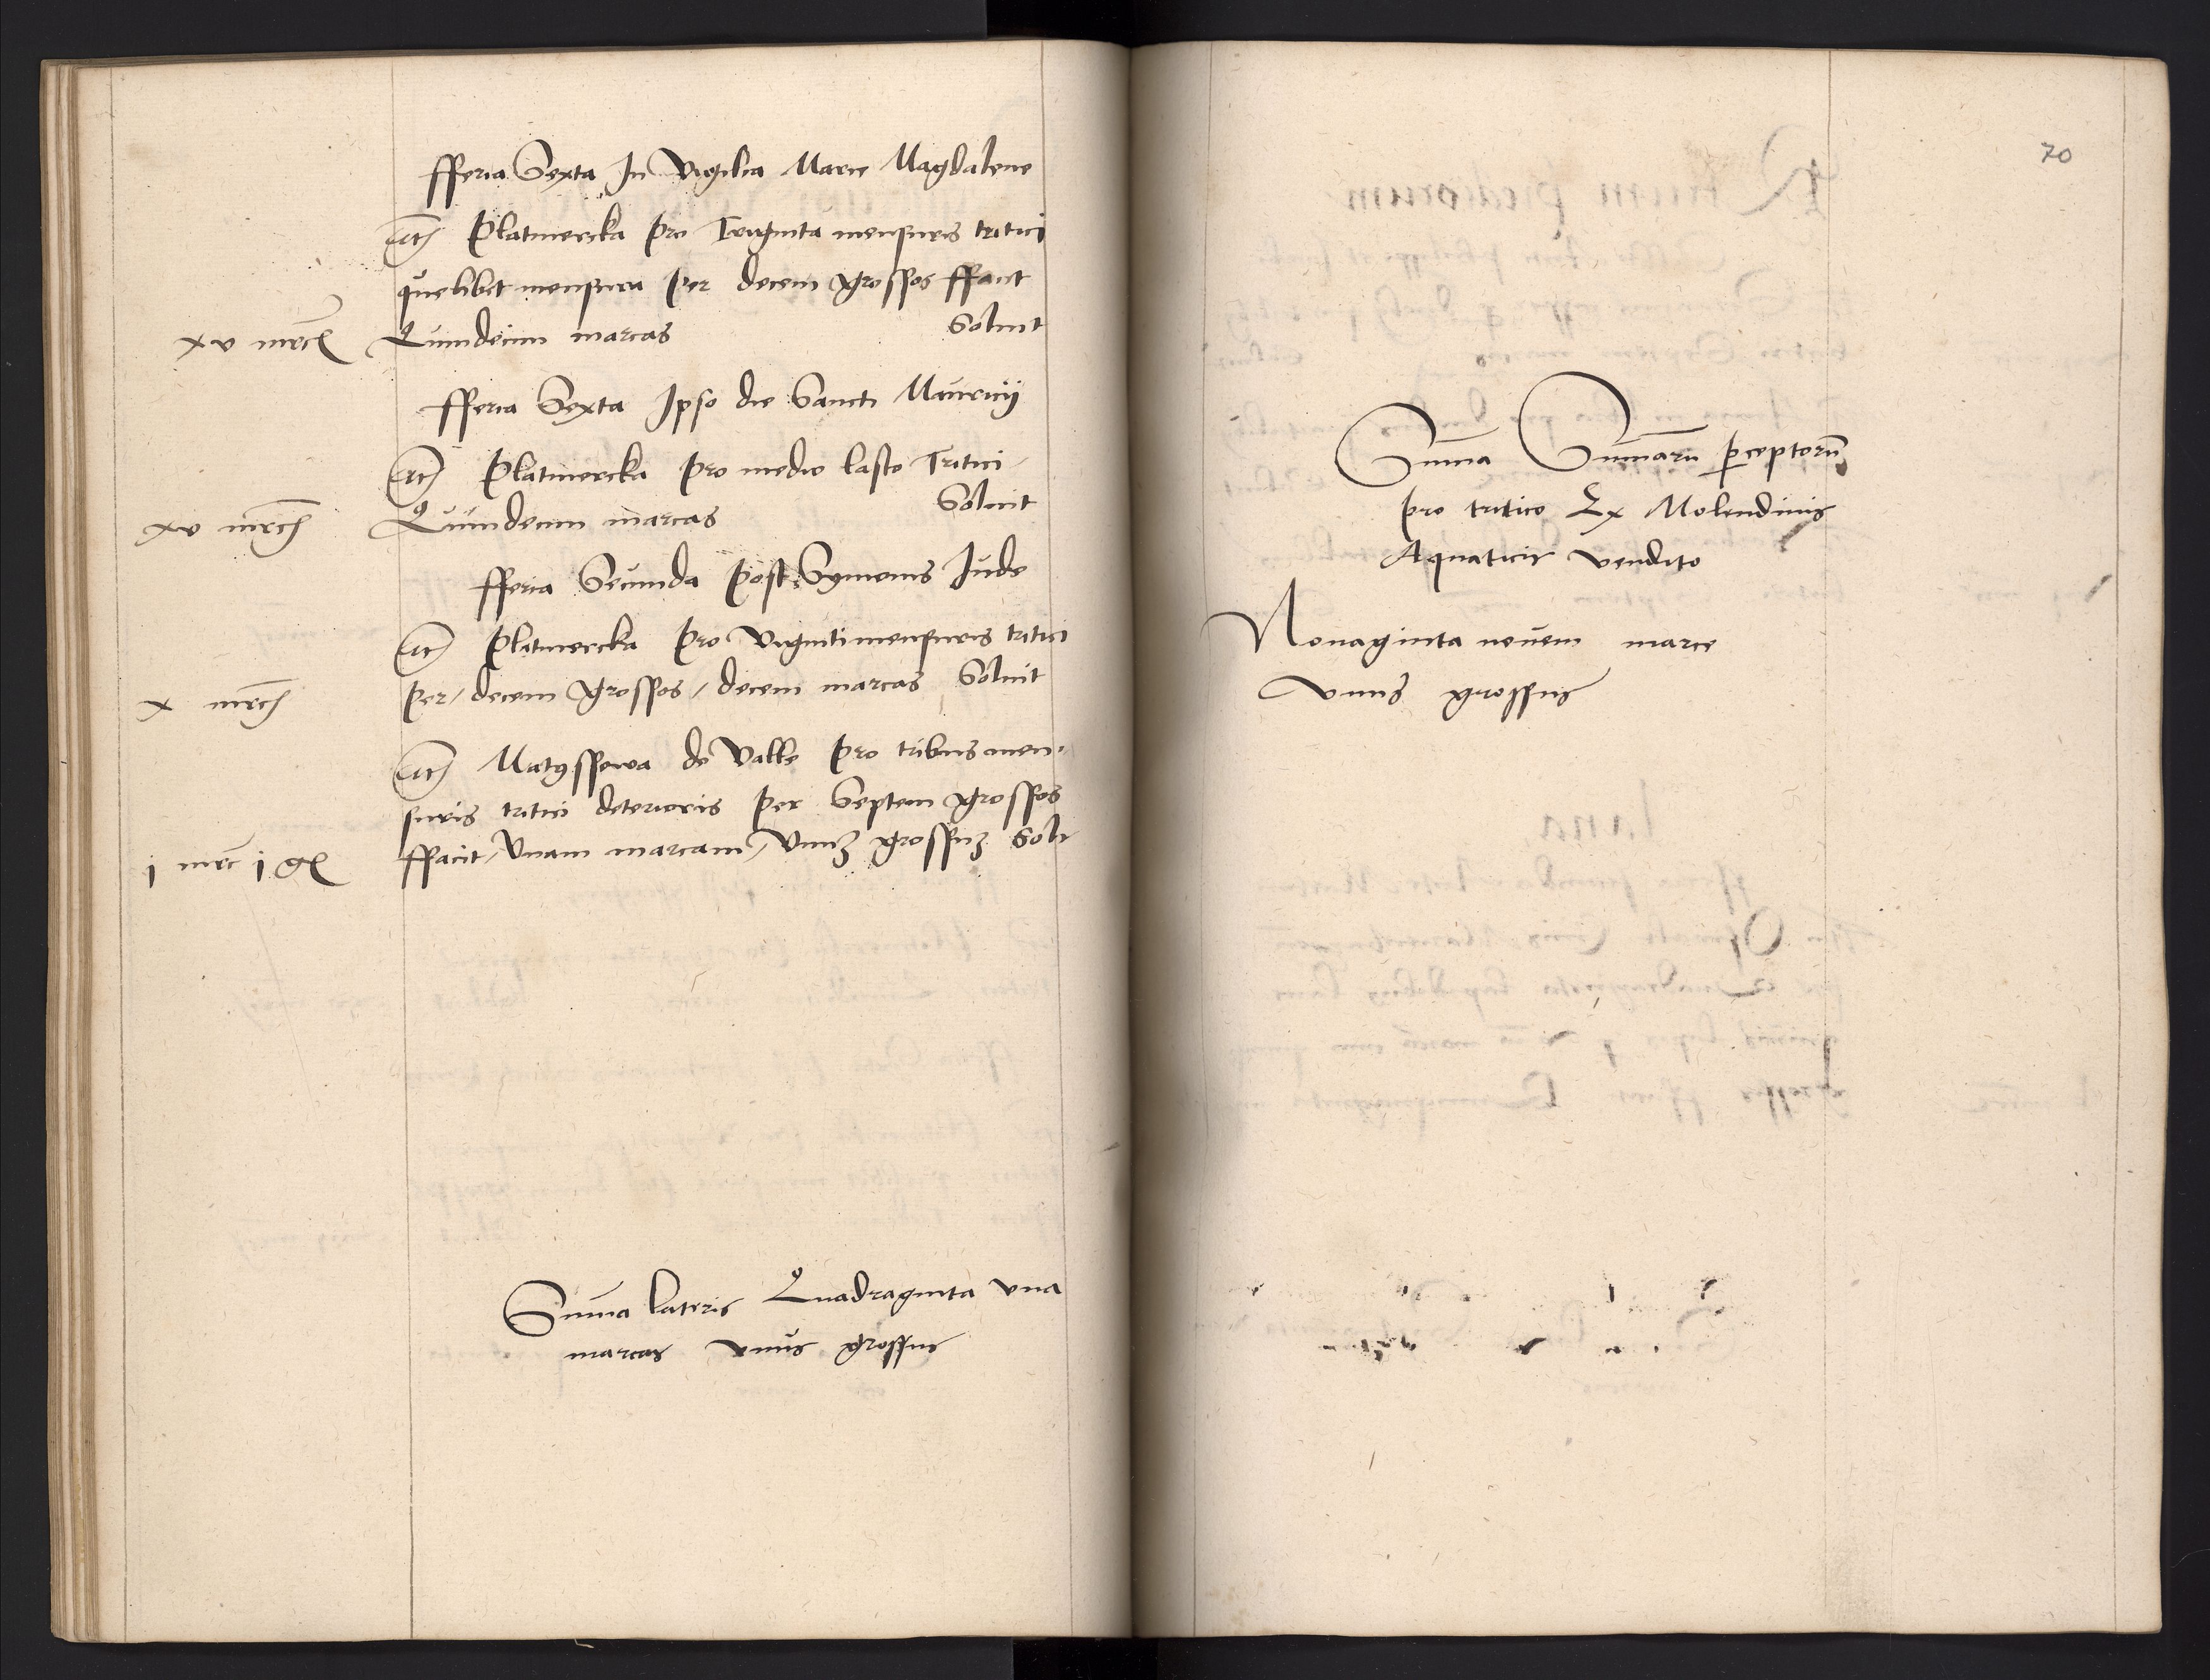 fferia Sexta In Vigilia Marie Magdalene
Itē Platnercka pro Triginta mensuris tritici
quelibet mensura per decem grossos ffacit
xv mrc̄ Quindecim marcas Soluit
fferia Sexta Ipso die Sancti Mauricij
Itē Platnercka pro medio lasto Tritici
xv mrc̄ Quindecim marcas Soluit
fferia Secunda post Symonis Jude
Itē Platnercka pro viginti mensuris tritici
x mrc̄ per / decem grossos / decem marcas Soluit
Itē Matyssowa de Valle pro tribus men-
suris tritici deterioris per Septem grossos
j mrc̄ j gr ffacit / Vnam marcam / Vnuʒ grossuʒ Solt
Sum̄a lateris Quadraginta vna
marcas vnus grossus
70
Sum̄a Sum̄aru perceptoru
pro tritico Ex Molendinis
Aquaticis vendito
Nonaginta nouem marce
vnus grossus